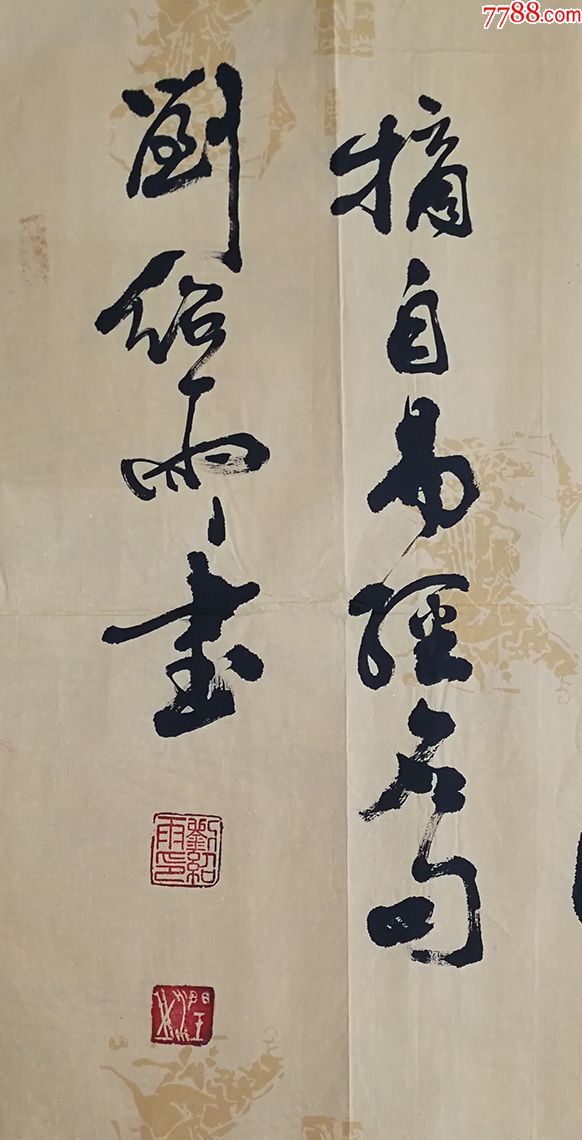 7788.com
摘自易經名句
劉紹雨書
劉紹雨印